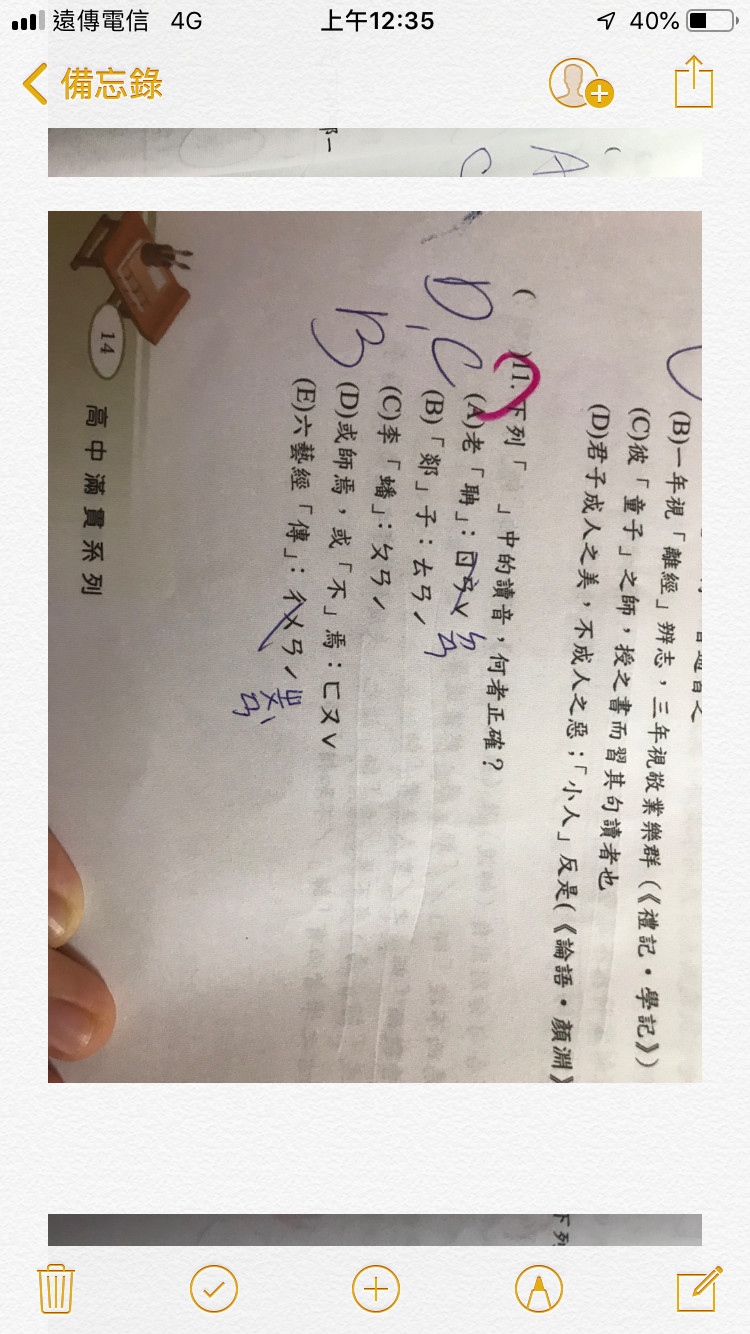 遠傳電信 4G 上午12:35 40%
備忘錄
A
C
(B)一年視「離經」辨志，三年視敬業樂群（《禮記・學記》）
(C)彼「童子」之師，授之書而習其句讀者也
(D)君子成人之美，不成人之惡；「小人」反是（《論語・顏淵》
( )11. 下列「 」中的讀音，何者正確？
(A)老「聃」：ㄖㄢˇ ㄉㄢ
(B)「郯」子：ㄊㄢˊ
(C)李「蟠」：ㄆㄢˊ
(D)或師焉，或「不」焉：ㄈㄡˇ
(E)六藝經「傳」：ㄔㄨㄢˊ ㄓㄨㄢˋ
D,C
B
14 高中滿貫系列
下列